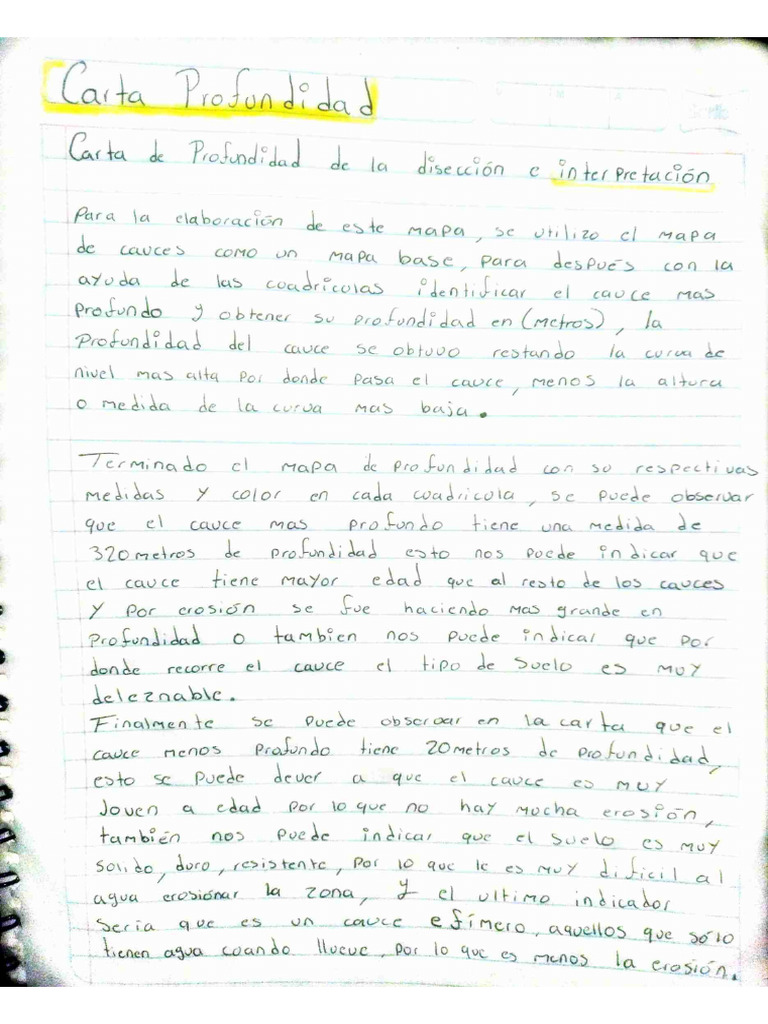 Carta Profundidad
Carta de Profundidad de la disección e interpretación
Para la elaboración de este mapa, se utilizo el mapa
de cauces como un mapa base, para después con la
ayuda de las cuadrículas identificar el cauce mas
profundo y obtener su profundidad en (metros), la
profundidad del cauce se obtuvo restando la curva de
nivel mas alta por donde pasa el cauce, menos la altura
o medida de la curva mas baja.
Terminado el mapa de profundidad con su respectivas
medidas y color en cada cuadricula, se puede observar
que el cauce mas profundo tiene una medida de
320metros de profundidad esto nos puede indicar que
el cauce tiene mayor edad que al resto de los cauces
y por erosión se fue haciendo mas grande en
profundidad o tambien nos puede indicar que por
donde recorre el cauce el tipo de suelo es muy
deleznable.
Finalmente se puede observar en la carta que el
cauce menos profundo tiene 20metros de profundidad,
esto se puede dever a que el cauce es muy
Joven a edad por lo que no hay mucha erosión,
también nos puede indicar que el suelo es muy
solido, duro, resistente, por lo que le es muy dificil al
agua erosionar la zona, y el ultimo indicador
seria que es un cauce efímero, aquellos que sólo
tienen agua cuando llueve, por lo que es menos la erosión.